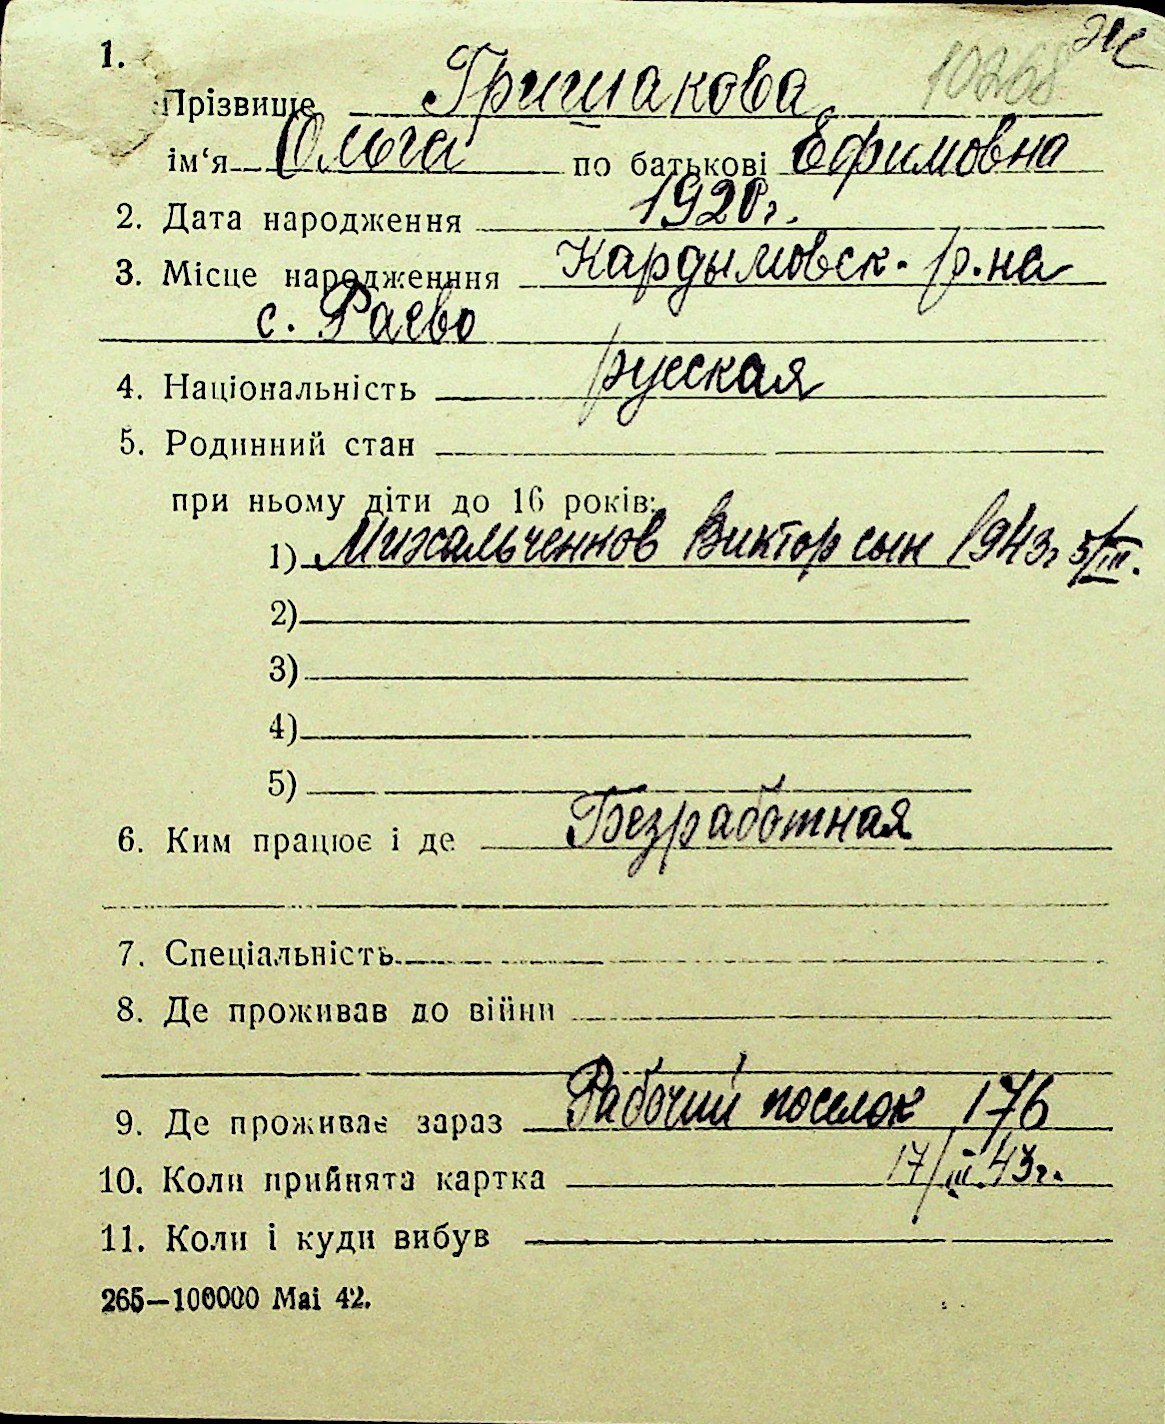 Ж
10268
1.
Прізвище Гришакова
ім‘я Ольга по батькові Ефимовна
2. Дата народження 1920г.
3. Місце народженння Кардымовск. р.на
с. Раево
4. Національність русская
5. Родинний стан
при ньому діти до 16 років:
1) Михальченков Виктор сын 1943г 5/III.
2)
3)
4)
5)
6. Ким працює і де Безработная
7. Спеціальність
8. Де проживав до війни
9. Де проживає зараз Рабочий поселок 176
10. Коли прийнята картка 17/III.43г.
11. Коли і куди вибув
265—100000 Mai 42.